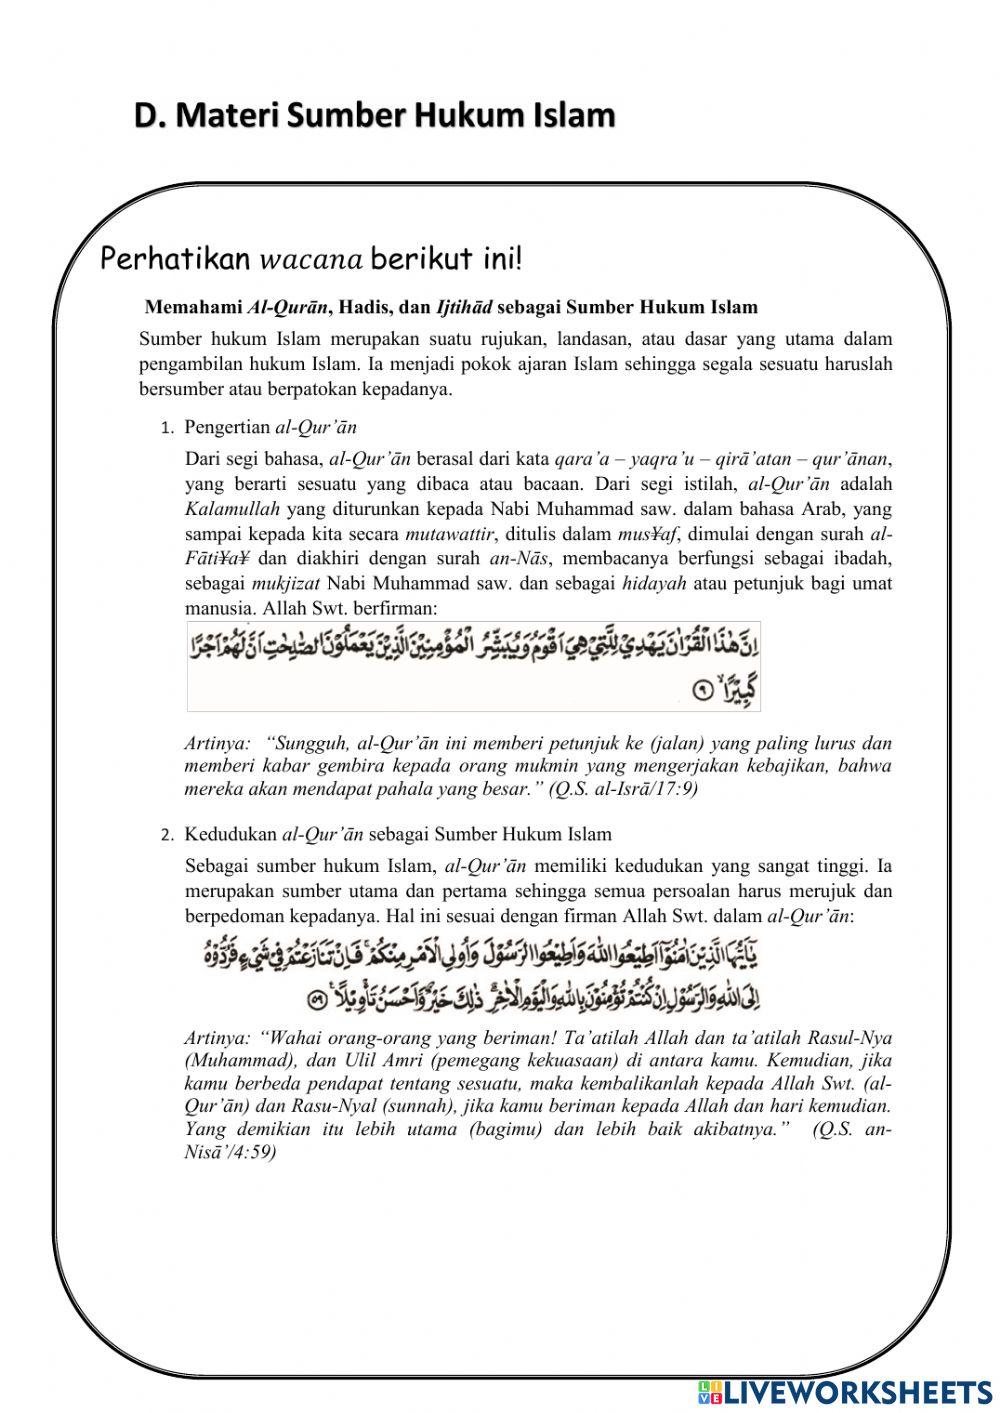 D. Materi Sumber Hukum Islam
Perhatikan wacana berikut ini!
Memahami Al-Qurān, Hadis, dan Ijtihād sebagai Sumber Hukum Islam
Sumber hukum Islam merupakan suatu rujukan, landasan, atau dasar yang utama dalam
pengambilan hukum Islam. Ia menjadi pokok ajaran Islam sehingga segala sesuatu haruslah
bersumber atau berpatokan kepadanya.
1. Pengertian al-Qur’ān
Dari segi bahasa, al-Qur’ān berasal dari kata qara’a – yaqra’u – qirā’atan – qur’ānan,
yang berarti sesuatu yang dibaca atau bacaan. Dari segi istilah, al-Qur’ān adalah
Kalamullah yang diturunkan kepada Nabi Muhammad saw. dalam bahasa Arab, yang
sampai kepada kita secara mutawattir, ditulis dalam mus¥af, dimulai dengan surah al-
Fāti¥a¥ dan diakhiri dengan surah an-Nās, membacanya berfungsi sebagai ibadah,
sebagai mukjizat Nabi Muhammad saw. dan sebagai hidayah atau petunjuk bagi umat
manusia. Allah Swt. berfirman:
اِنَّ هٰذَا الْقُرْاٰنَ يَهْدِيْ لِلَّتِيْ هِيَ اَقْوَمُ وَيُبَشِّرُ الْمُؤْمِنِيْنَ الَّذِيْنَ يَعْمَلُوْنَ الصّٰلِحٰتِ اَنَّ لَهُمْ اَجْرًا
كَبِيْرًاۙ ٩
Artinya: “Sungguh, al-Qur’ān ini memberi petunjuk ke (jalan) yang paling lurus dan
memberi kabar gembira kepada orang mukmin yang mengerjakan kebajikan, bahwa
mereka akan mendapat pahala yang besar.” (Q.S. al-Isrā/17:9)
2. Kedudukan al-Qur’ān sebagai Sumber Hukum Islam
Sebagai sumber hukum Islam, al-Qur’ān memiliki kedudukan yang sangat tinggi. Ia
merupakan sumber utama dan pertama sehingga semua persoalan harus merujuk dan
berpedoman kepadanya. Hal ini sesuai dengan firman Allah Swt. dalam al-Qur’ān:
يٰٓاَيُّهَا الَّذِيْنَ اٰمَنُوْٓا اَطِيْعُوا اللّٰهَ وَاَطِيْعُوا الرَّسُوْلَ وَاُولِى الْاَمْرِ مِنْكُمْۚ فَاِنْ تَنَازَعْتُمْ فِيْ شَيْءٍ فَرُدُّوْهُ
اِلَى اللّٰهِ وَالرَّسُوْلِ اِنْ كُنْتُمْ تُؤْمِنُوْنَ بِاللّٰهِ وَالْيَوْمِ الْاٰخِرِۗ ذٰلِكَ خَيْرٌ وَّاَحْسَنُ تَأْوِيْلًا ۚ ٥٩
Artinya: “Wahai orang-orang yang beriman! Ta’atilah Allah dan ta’atilah Rasul-Nya
(Muhammad), dan Ulil Amri (pemegang kekuasaan) di antara kamu. Kemudian, jika
kamu berbeda pendapat tentang sesuatu, maka kembalikanlah kepada Allah Swt. (al-
Qur’ān) dan Rasu-Nyal (sunnah), jika kamu beriman kepada Allah dan hari kemudian.
Yang demikian itu lebih utama (bagimu) dan lebih baik akibatnya.” (Q.S. an-
Nisā’/4:59)
LIVE LIVEWORKSHEETS